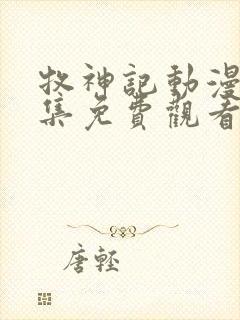 牧神記動漫
集免費觀看
唐輕